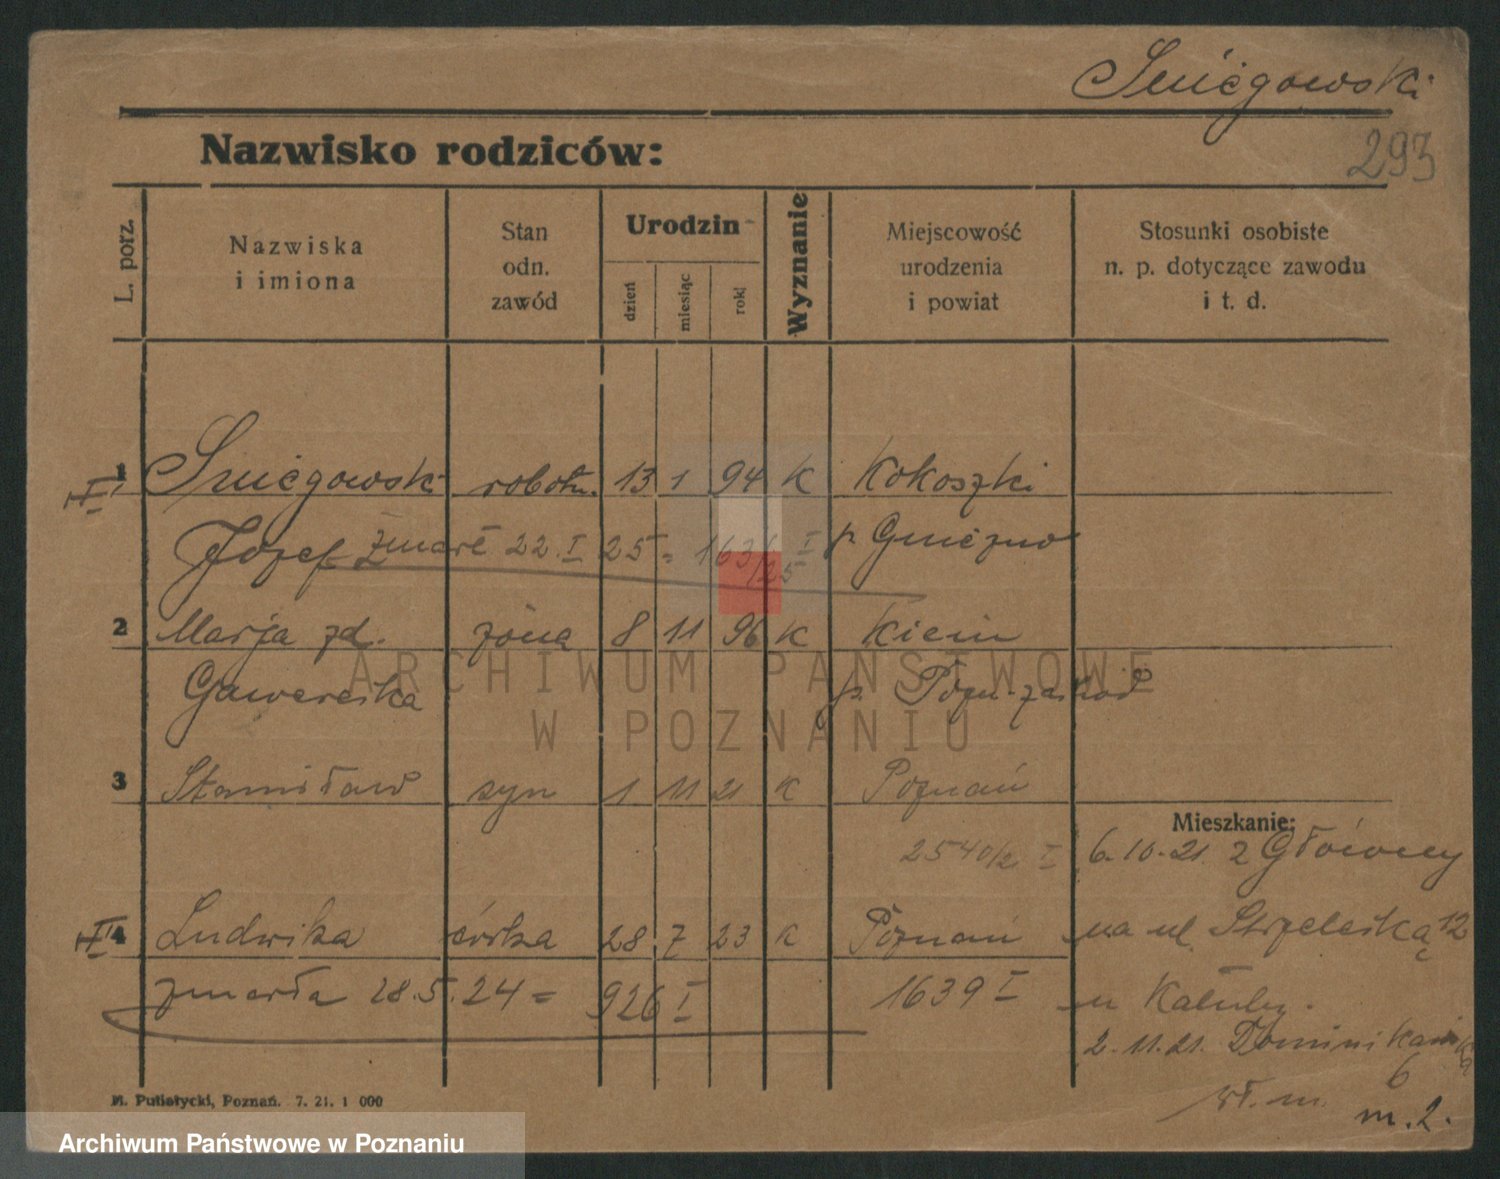 Śniegowski
293
Nazwisko rodziców:
L. porz.
Nazwiska
i imiona
Stan
odn.
zawód
Urodzin
dzień
miesiąc
rok
Wyznanie
Miejscowość
urodzenia
i powiat
Stosunki osobiste
n. p. dotyczące zawodu
i t. d.
1 Śniegowski robotn. 13 1 94 K Kokoszki
Józef zmarł 22.I 25 = 163/25 I p. Gniezno
2 Marja zd. żona 8 11 96 K Kicin
p. Pozn-zachod
3 Stanisław syn 1 11 21 K Poznań
Mieszkanie:
2540/2 I 6.10.21. z Główny
4 Ludwika córka 28 7 23 K Poznań
na ul Strzelecką 12
zmarła 28.5.24 = 926 I 1639 I
u Kałuby.
2.11.21. Dominikańska
6
m.2.
M. Putiatycki, Poznań. 7. 21. 1 000
ARCHIWUM PAŃSTWOWE
W POZNANIU
Archiwum Państwowe w Poznaniu